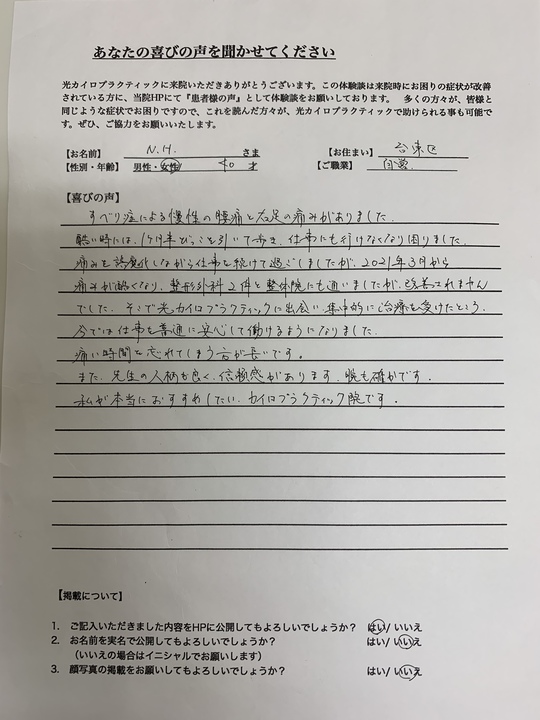 あなたの喜びの声を聞かせてください
光カイロプラクティックに来院いただきありがとうございます。この体験談は来院時にお困りの症状が改善
されている方に、当院HPにて『患者様の声』として体験談をお願いしております。 多くの方々が、皆様と
同じような症状でお困りですので、これを読んだ方々が、光カイロプラクティックで助けられる事も可能で
す。ぜひ、ご協力をお願いいたします。
【お名前】 N.H. さま 【お住まい】 台東区
【性別・年齢】 男性・女性 40 才 【ご職業】 自営
【喜びの声】
すべり症による慢性の腰痛と右足の痛みがありました.
酷い時には、1ヶ月半びっこを引いて歩き、仕事にも行けなくなり困りました.
痛みを誤魔化しながら仕事を続けて過ごしましたが、2021年3月から
痛みが酷くなり、整形外科2件と整体院にも通いましたが、改善されません
でした. そこで光カイロプラクティックに出会い 集中的に治療を受けたところ.
今では仕事を普通に安心して働けるようになりました.
痛い時間を忘れてしまう方が長いです.
また、先生の人柄も良く、信頼感があります. 腕も確かです.
私が本当におすすめしたい. カイロプラクティック院です.
【掲載について】
1. ご記入いただきました内容をHPに公開してもよろしいでしょうか? はい/いいえ
2. お名前を実名で公開してもよろしいでしょうか? はい/いいえ
(いいえの場合はイニシャルでお願いします)
3. 顔写真の掲載をお願いしてもよろしいでしょうか? はい/いいえ